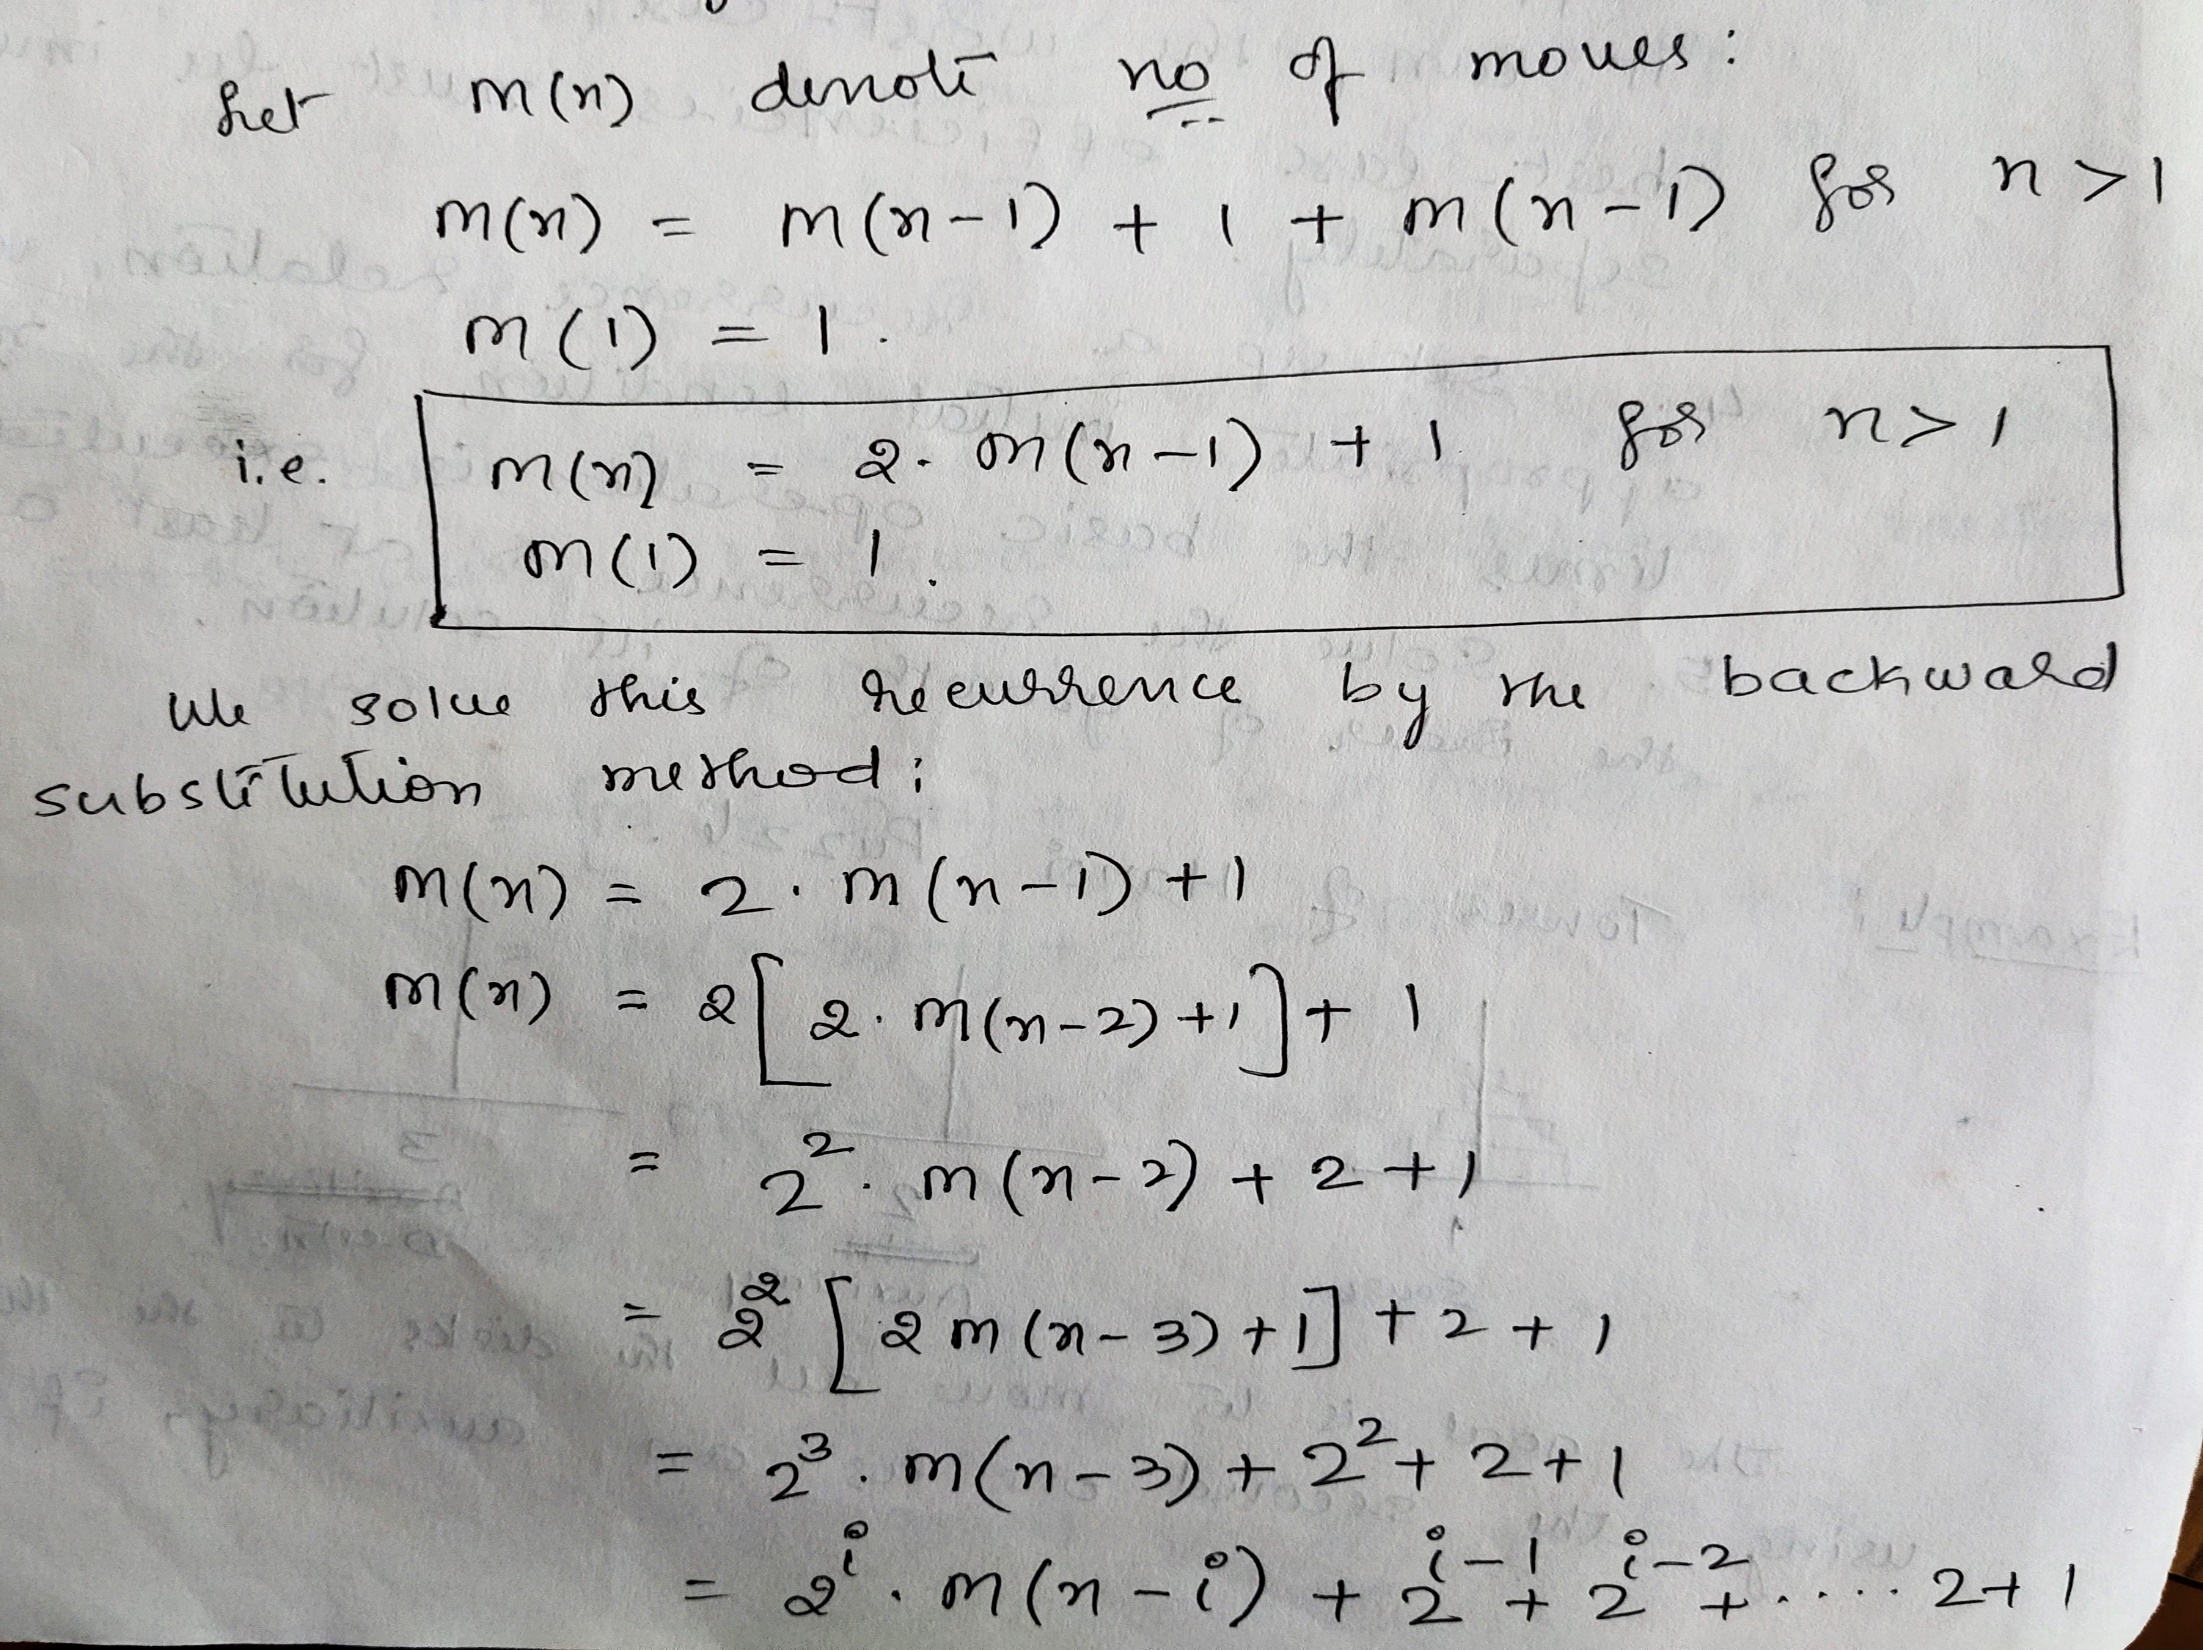 Let m(n) denote no of moves:
m(n) = m(n-1) + 1 + m(n-1) for n>1
m(1) = 1.
i.e. m(n) = 2. m(n-1) + 1 for n>1
m(1) = 1.
We solve this recurrence by the backward
substitution method:
m(n) = 2. m(n-1) +1
m(n) = 2[2. m(n-2)+1]+ 1
= 2². m(n-2) + 2 +1
= 2² [2 m(n-3)+1] + 2 + 1
= 2³. m(n-3) + 2² + 2 + 1
= 2ⁱ. m(n-i) + 2ⁱ⁻¹ + 2ⁱ⁻² + ..... 2+1